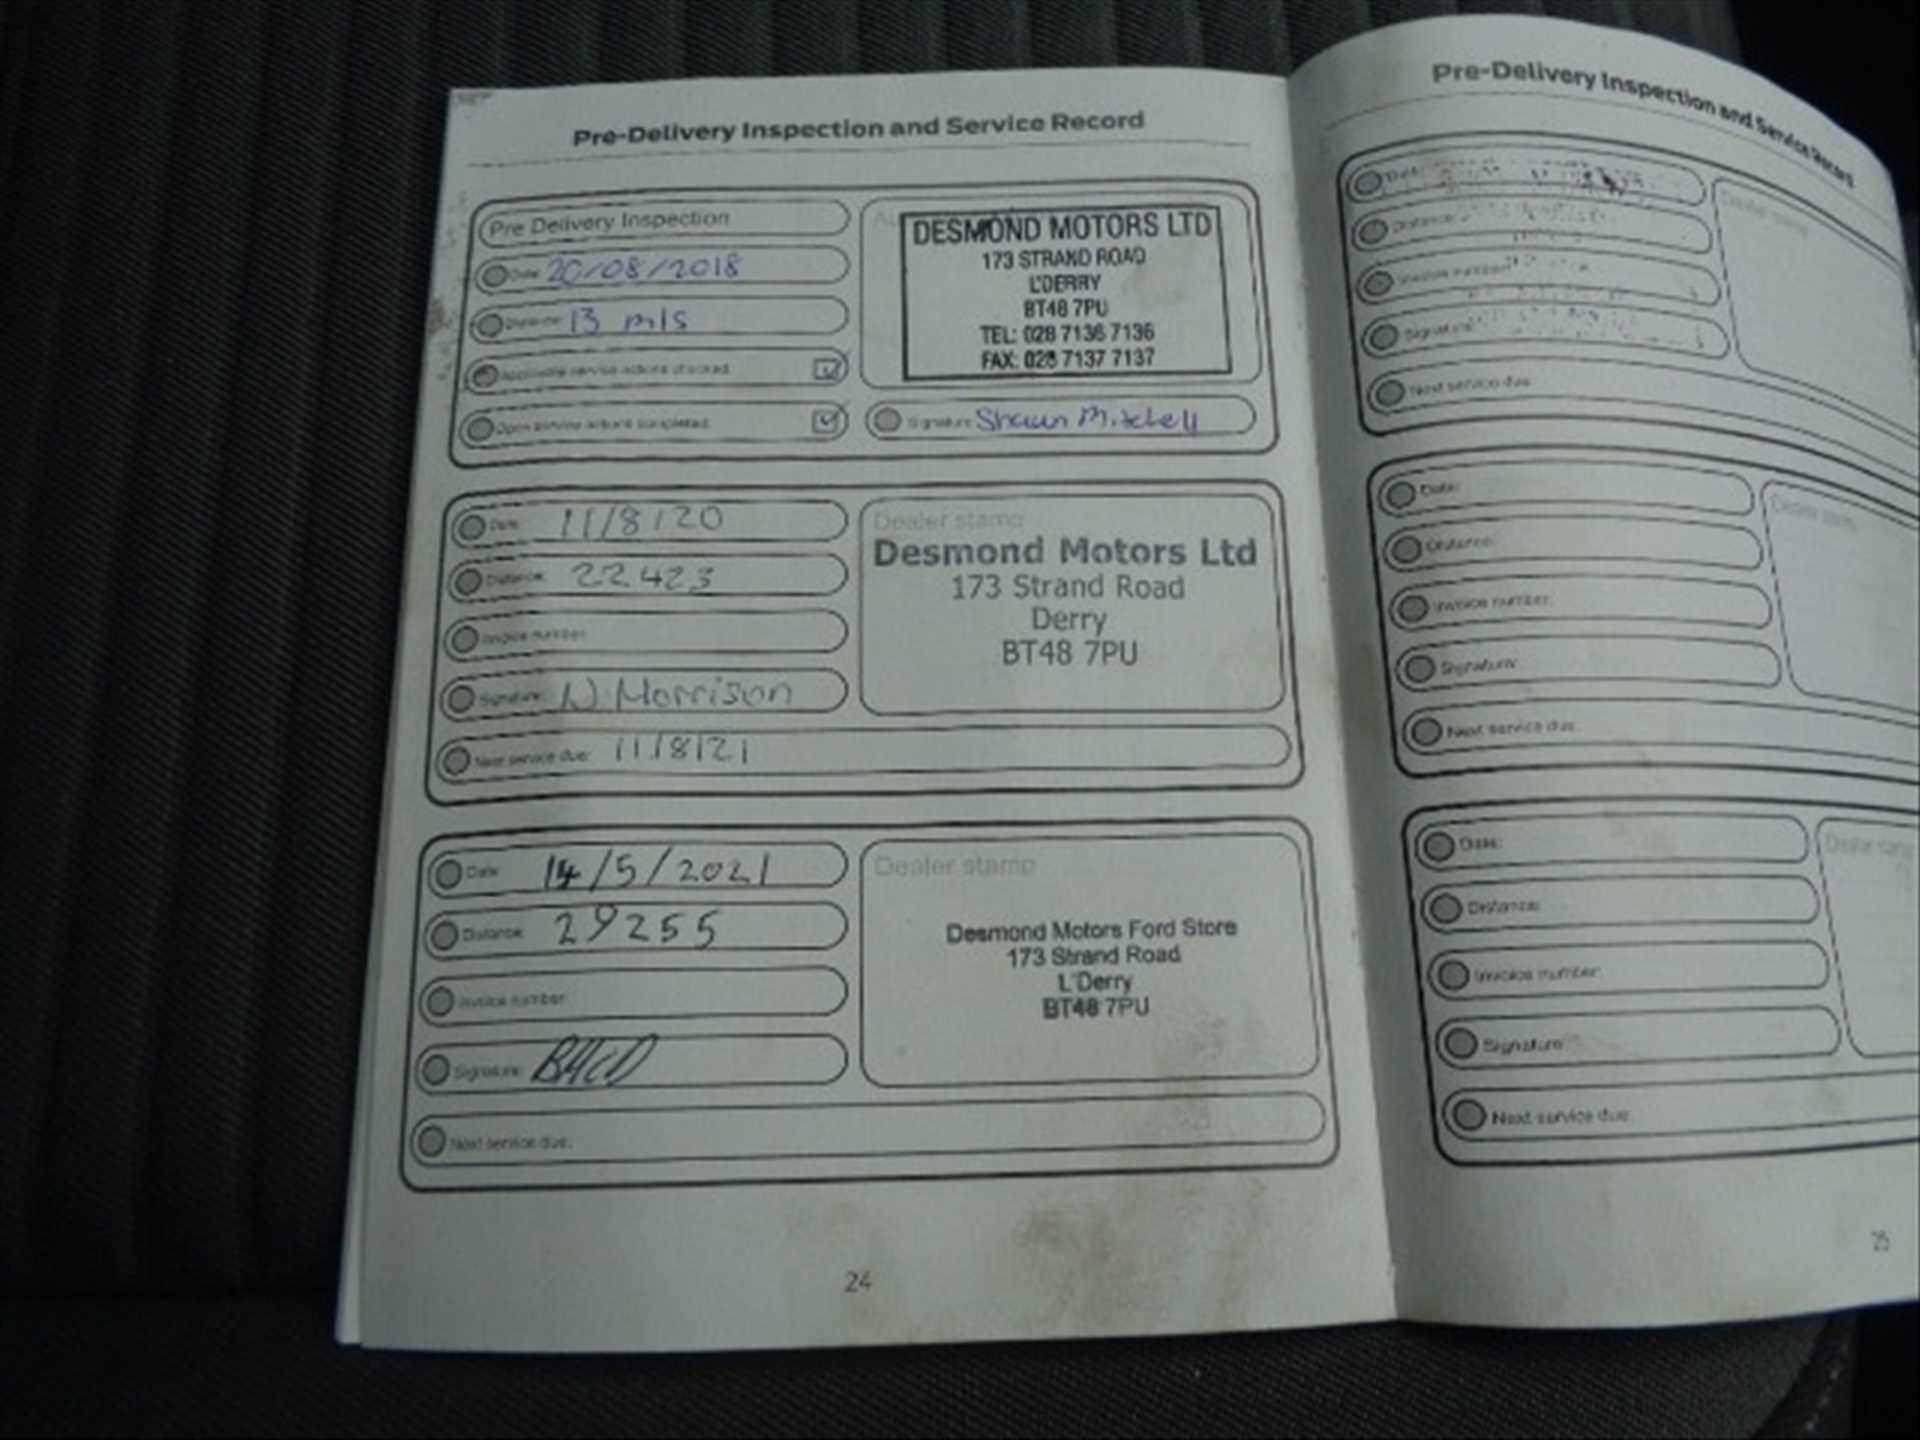 Pre-Delivery Inspection and Service Record
Pre Delivery Inspection
Date: 20/08/2018
Distance: 13 mls
Applicable service actions checked
Open service actions completed
DESMOND MOTORS LTD
173 STRAND ROAD
L'DERRY
BT48 7PU
TEL: 028 7136 7136
FAX: 028 7137 7137
Signature: Shaun Mitchell
Date: 11/8/20
Distance: 22423
Invoice number:
Signature: N. Morrison
Next service due: 11/8/21
Dealer stamp
Desmond Motors Ltd
173 Strand Road
Derry
BT48 7PU
Date: 14/5/2021
Distance: 29255
Invoice number:
Signature:
Next service due:
Dealer stamp
Desmond Motors Ford Store
173 Strand Road
L'Derry
BT48 7PU
24
Pre-Delivery Inspection and Service Record
Date:
Distance:
Invoice number:
Signature:
Next service due:
Dealer stamp
Date:
Distance:
Invoice number:
Signature:
Next service due:
Dealer stamp
Date:
Distance:
Invoice number:
Signature:
Next service due:
Dealer stamp
25